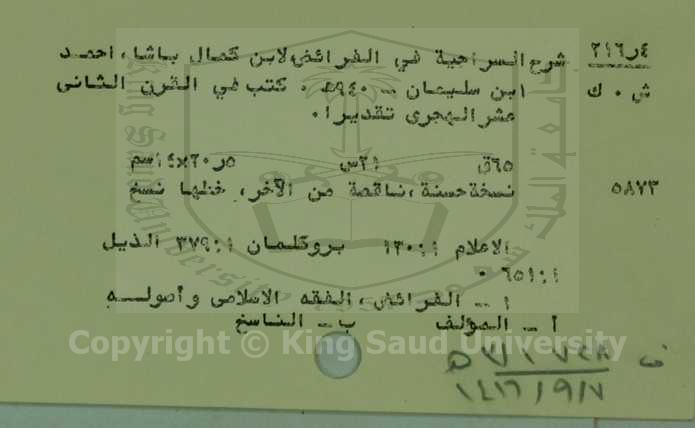 ٢١٦ر٤ شرح السراجية في الفرائض لابن كمال باشا، احمد
ش ٠ ك ابن سليمان - ٩٤٠ه ٠ كتب في القرن الثاني
عشر الهجرى تقديرا ٠
٦٥ق ٢١س ٥ر٢٠×١٤سم
٥٨٧٣ نسخة حسنة، ناقصة من الآخر، خطها نسخ
الاعلام ١:١٣٠ بروكلمان ١:٣٧٩ الذيل
١:٦٥١ ٠
١ - الفرائض، الفقه الاسلامى وأصولـــه
أ - المؤلف ب - الناسخ
Copyright © King Saud University
ف ٧٤٨
١٤١٦/٩/٧